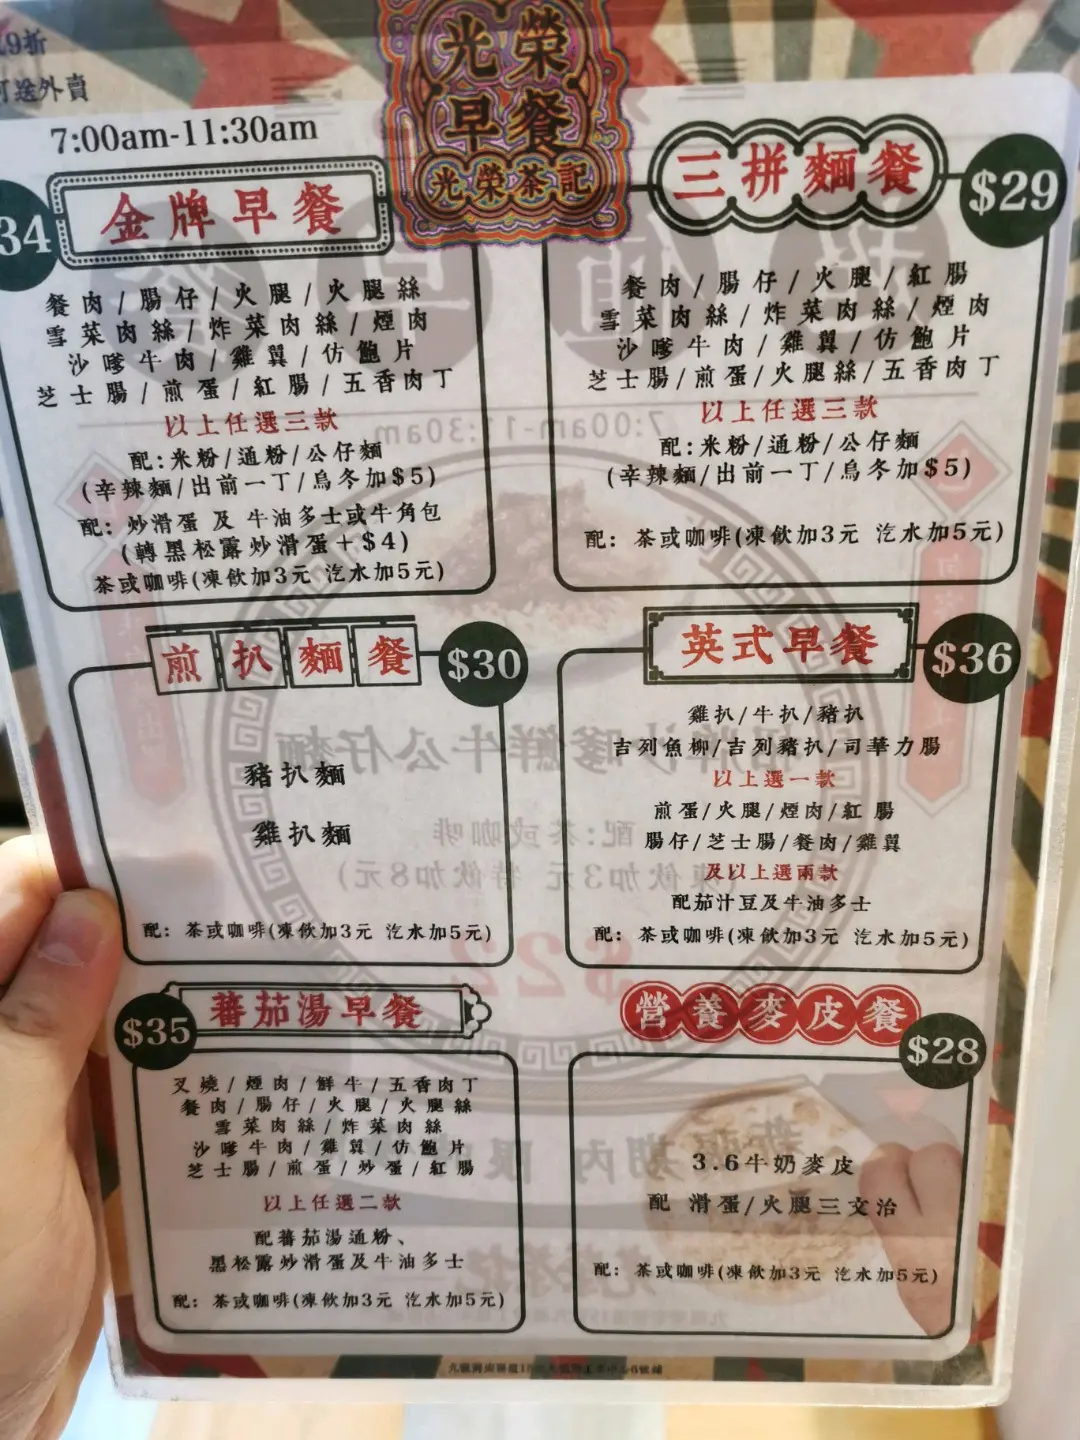 9折
可送外賣
光榮
早餐
光榮茶記
7:00am-11:30am
金牌早餐
34
餐肉/腸仔/火腿/火腿絲
雪菜肉絲/炸菜肉絲/煙肉
沙嗲牛肉/雞翼/仿鮑片
芝士腸/煎蛋/紅腸/五香肉丁
以上任選三款
配:米粉/通粉/公仔麵
(辛辣麵/出前一丁/烏冬加$5)
配: 炒滑蛋 及 牛油多士或牛角包
(轉黑松露炒滑蛋+$4)
茶或咖啡(凍飲加3元 汽水加5元)
三拼麵餐
$29
餐肉/腸仔/火腿/紅腸
雪菜肉絲/炸菜肉絲/煙肉
沙嗲牛肉/雞翼/仿鮑片
芝士腸/煎蛋/火腿絲/五香肉丁
以上任選三款
配:米粉/通粉/公仔麵
(辛辣麵/出前一丁/烏冬加$5)
配: 茶或咖啡(凍飲加3元 汽水加5元)
煎扒麵餐
$30
豬扒麵
雞扒麵
配: 茶或咖啡(凍飲加3元 汽水加5元)
英式早餐
$36
雞扒/牛扒/豬扒
吉列魚柳/吉列豬扒/司華力腸
以上選一款
煎蛋/火腿/煙肉/紅腸
腸仔/芝士腸/餐肉/雞翼
及以上選兩款
配茄汁豆及牛油多士
配: 茶或咖啡(凍飲加3元 汽水加5元)
蕃茄湯早餐
$35
叉燒/煙肉/鮮牛/五香肉丁
餐肉/腸仔/火腿/火腿絲
雪菜肉絲/炸菜肉絲
沙嗲牛肉/雞翼/仿鮑片
芝士腸/煎蛋/炒蛋/紅腸
以上任選二款
配蕃茄湯通粉、
黑松露炒滑蛋及牛油多士
配: 茶或咖啡(凍飲加3元 汽水加5元)
營養麥皮餐
$28
3.6牛奶麥皮
配 滑蛋/火腿三文治
配: 茶或咖啡(凍飲加3元 汽水加5元)